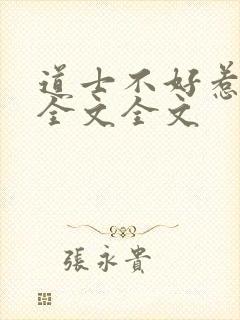 道士不好惹
全文全文
張永貴